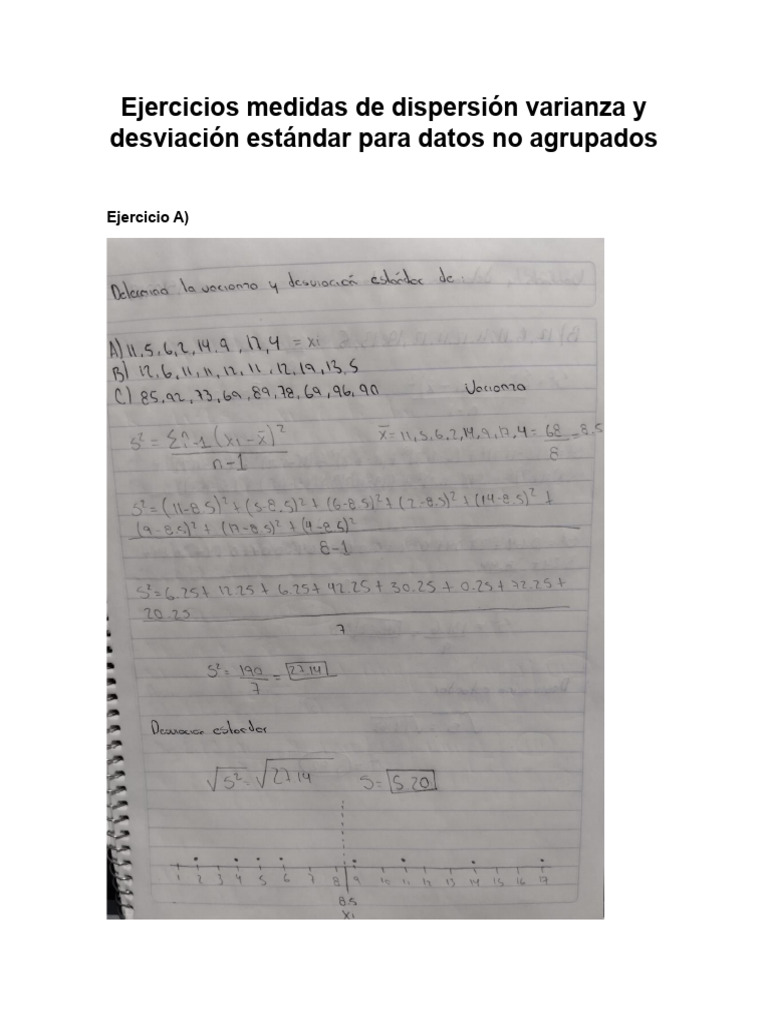 Ejercicios medidas de dispersión varianza y
desviación estándar para datos no agrupados
Ejercicio A)
Determina la varianza y desviación estándar de
A) 11, 5, 6, 2, 14, 9, 17, 4 = xi
B) 12, 6, 11, 11, 12, 11, 12, 19, 13, 5
C) 85, 92, 73, 69, 89, 78, 69, 96, 90 Varianza
S² = Σ -1 (xi - x̄)² x̄ = 11, 5, 6, 2, 14, 9, 17, 4 = 68 = 8.5
n-1 8
S² = (11-8.5)² + (5-8.5)² + (6-8.5)² + (2-8.5)² + (14-8.5)² +
(9-8.5)² + (17-8.5)² + (4-8.5)²
8-1
S² = 6.25 + 12.25 + 6.25 + 42.25 + 30.25 + 0.25 + 72.25 +
20.25
7
S² = 190 = 27.14
7
Desviación estandar
√S² = √27.14 S = 5.20
1 2 3 4 5 6 7 8 9 10 11 12 13 14 15 16 17
8.5
Xi